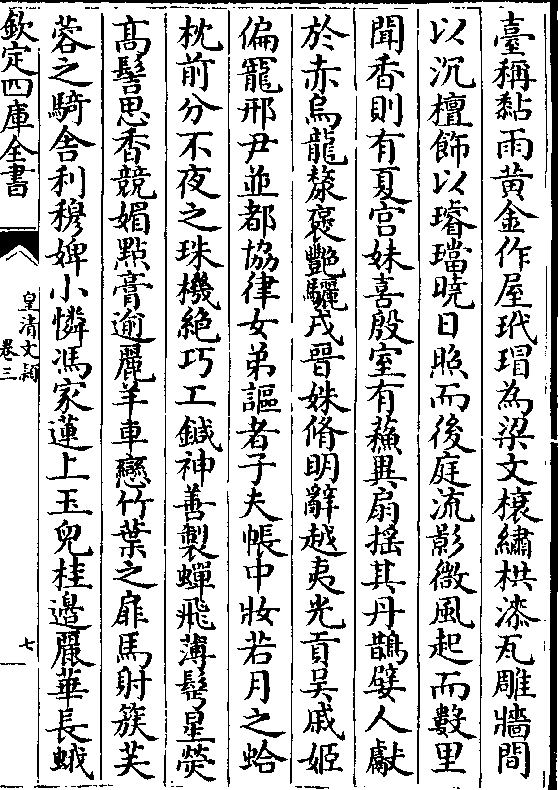 臺稱黏雨黃金作屋玳瑁為梁文榱繡栱漆瓦雕牆間
以沉檀飾以璿璫曉日照而後庭流影微風起而數里
聞香則有夏宫妹喜殷室有蘓異扇揺其丹鵲嬖人獻
於赤烏龍漦褒豔驪戎晉姝脩明辭越夷光貢吳戚姬
偏寵邢尹並都協律女弟謳者子夫帳中妝若月之蛤
枕前分不夜之珠機絶巧工鍼神善製蟬飛薄鬂星熒
髙髻思香競媚點膏逾麗羊車戀竹葉之扉馬射簇芙
蓉之騎舎利穆婢小憐馮家蓮上玉兒桂邉麗華長蛾
欽定四庫全書
皇清文穎
卷三
七